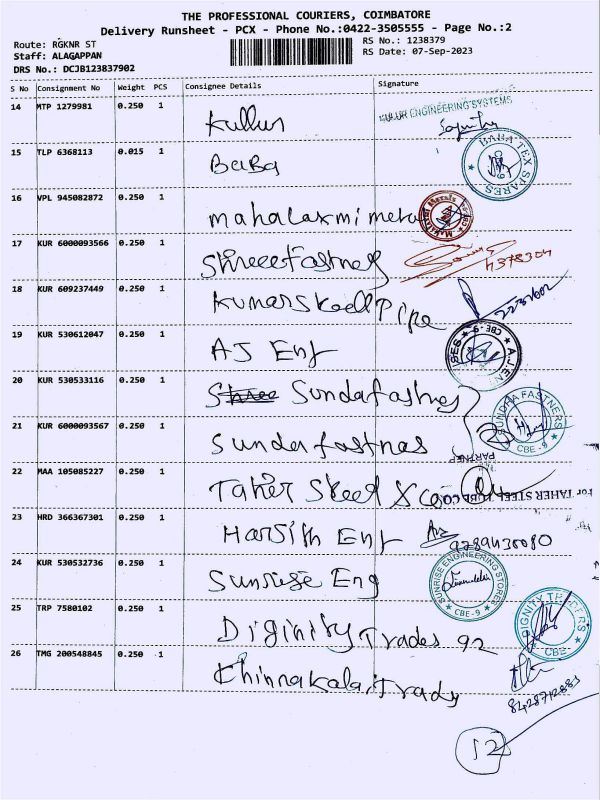 THE PROFESSIONAL COURIERS, COIMBATORE
Delivery Runsheet - PCX - Phone No.:0422-3505555 - Page No.:2
Route: RGKNR ST
RS No.: 1238379
Staff: ALAGAPPAN
RS Date: 07-Sep-2023
DRS No.: DCJB123837902
S No Consignment No Weight PCS Consignee Details Signature
14 MTP 1279981 0.250 1 Kullur KULUR ENGINEERING SYSTEMS
15 TLP 6368113 0.015 1 BaBa BABA TEX SPARES CBE-9
16 VPL 945082872 0.250 1 mahalaxmi metal
17 KUR 6000093566 0.250 1 Shreeefastners 4378304
18 KUR 609237449 0.250 1 Kumar Steel Pipe 2231602
19 KUR 530612047 0.250 1 AJ Ent A.J.EN SES CBE-9
20 KUR 530533116 0.250 1 Shree Sundafastnes
21 KUR 6000093567 0.250 1 Sundarfastnas SUNDHA FASTNERS CBE-9
PARTNER
22 MAA 105085227 0.250 1 Taher Steel & co For TAHER STEEL TUBE CO.
23 HRD 366367301 0.250 1 Harsith Ent 9789430080
24 KUR 530532736 0.250 1 Sunrise Eng SUNRISE ENGINEERING STORES CBE-9
25 TRP 7580102 0.250 1 Diginity Trades 92 DIGNITY TRADERS CBE
26 TMG 200548845 0.250 1 Chinnakalai Trady 8428712883
12